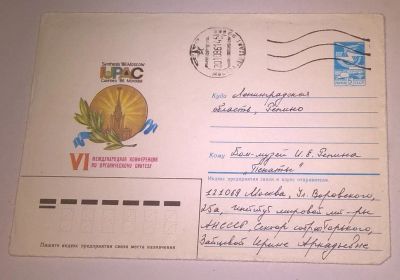 Synthesis '86 Moscow
IUPAC
Синтез '86 Москва
VI МЕЖДУНАРОДНАЯ КОНФЕРЕНЦИЯ
ПО ОРГАНИЧЕСКОМУ СИНТЕЗУ
Куда Ленинградская
область, Репино
Кому Дом-музей И.Е. Репина
"Пенаты"
Индекс предприятия связи и адрес отправителя
121069 Москва, Ул. Воровского,
25а, Институт мировой лит-ры
АН СССР, Сектор
Зайцевой Ирине Аркадьевне
Пишите индекс предприятия связи места назначения